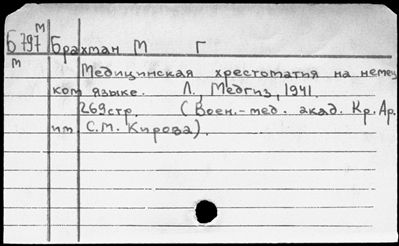 М
Б797 Брахман М Г
М
Медицинская хрестоматия на немец
ком языке. Л., Медгиз, 1941.
269стр. (Воен.-мед. акад. Кр. Ар.
им С.М. Кирова).